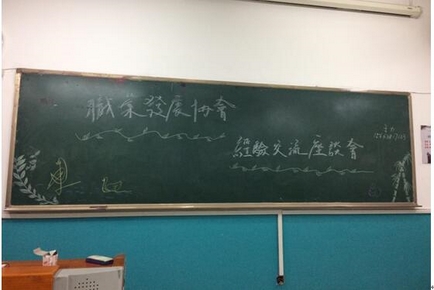 職業發展协會
經驗交流座談會